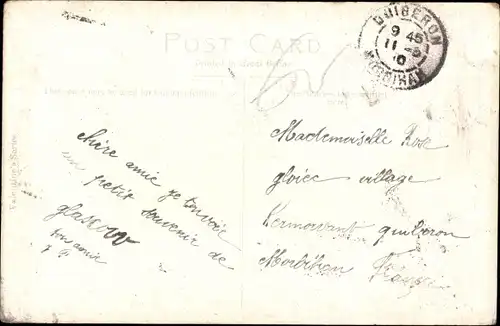 POST CARD
QUIBERON
9 45
11 -5
10
MORBIHAN
Chère amie je t'envoie
un petit souvenir de
glascow
ton amie
Mademoiselle Rose
gloiec village
Kermorvant quiberon
Morbihan France